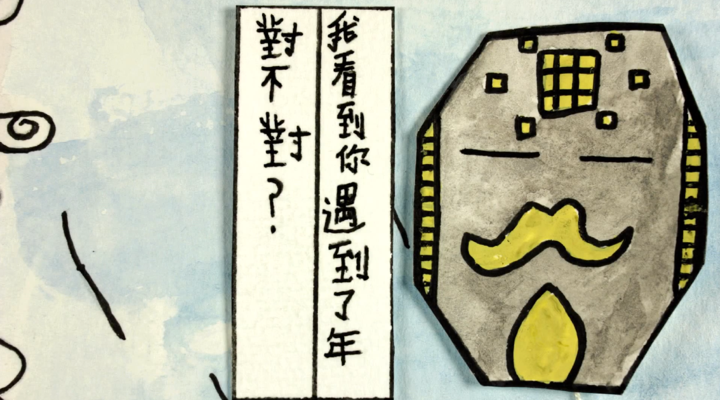 我看到你遇到了年
對不對？